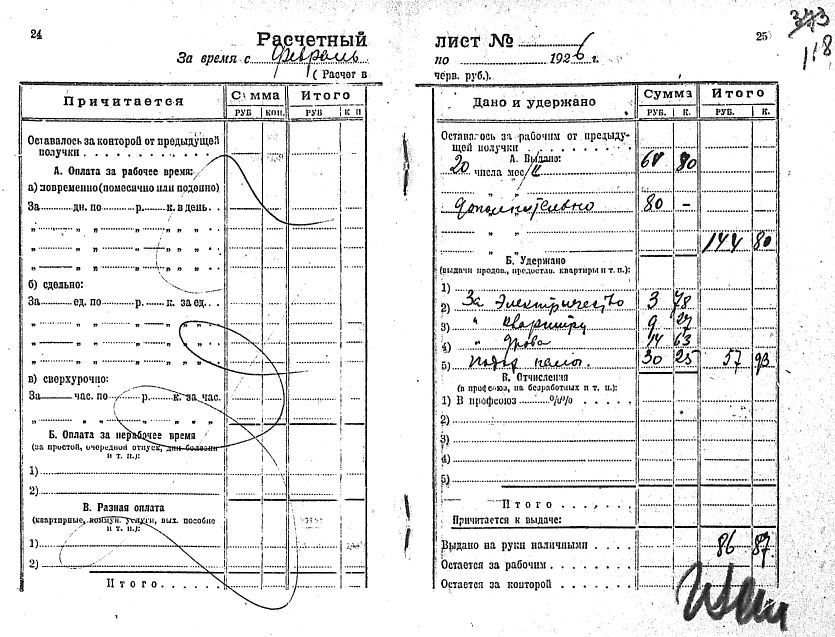 24
Расчетный
За время с Февраль
( Расчет в
Причитается
Сумма
Итого
РУБ
КОП.
РУБ
К П
Оставалось за конторой от предыдущей
получки . . . . . . . . . . . .
А. Оплата за рабочее время:
а) повременно (помесячно или поденно)
За дн. по р. к. в день. . .
" " " " " " . .
" " " " " " . .
" " " " " " . .
б) сдельно:
За ед. по р. к. за ед. . .
" " " " " " . .
" " " " " " . .
" " " " " " . .
в) сверхурочно:
За час. по р. к. за час.
" " " " " "
Б. Оплата за нерабочее время
(за простой, очередной отпуск, дни болезни
и т. п.):
1)
2)
В. Разная оплата
(квартирные, коммун. услуги, вых. пособие
и т. п.):
1)
2)
Итого. . . . . .
лист №
25
373
118
по 1926 г.
черв. руб.).
Дано и удержано
Сумма
Итого
РУБ.
К.
РУБ.
К.
Оставалось за рабочим от предыду-
щей получки . . . . . . . . . .
А. Выдано:
20 числа мес/II 64 80
" "
дополнительно 80 -
" "
" " 144 80
Б. Удержано
(выдачи продов., предостав. квартиры и т. п.):
1)
2) За Электричество 3 78
3) " квартиру 9 27
4) " дрова 14 63
5) 30 25 57 93
В. Отчисления
(в профсоюз, на безработных и т. п.):
1) В профсоюз %% . . . . .
2)
3)
4)
5)
Итого . . . . .
Причитается к выдаче:
Выдано на руки наличными . . . . 86 87
Остается за рабочим. . . . . . . .
Остается за конторой . . . . . . .